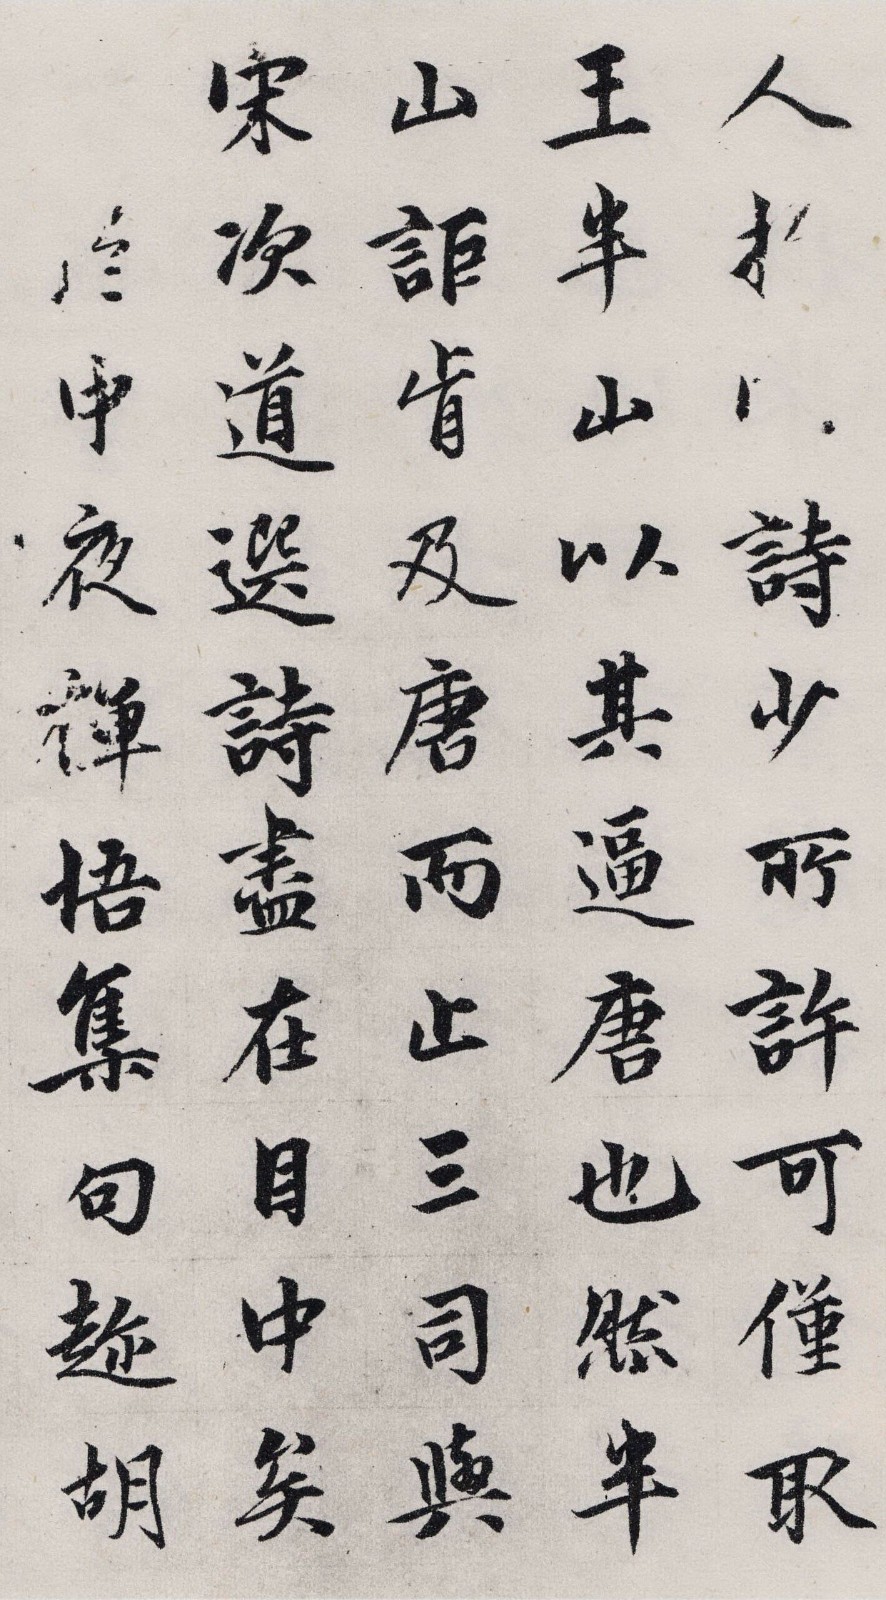 人於詩少所許可僅取
王半山以其逼唐也然半
山詎肯及唐而止三司與
宋次道選詩盡在目中矣
申夜禪悟集句趂胡